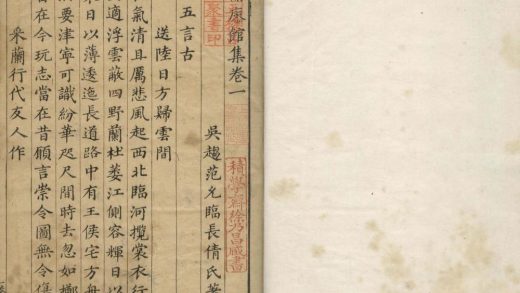 廖館集卷一
吳趨范允臨長倩氏著
五言古
送陸日方歸雲間
氣清且厲悲風起西北臨河攬裳衣行
適浮雲蔽四野蘭杜萎江側容輝日以
日以薄逶迤長道路中有王侯宅方舟
要津寧可識紛華咫尺間時去忽如擲
在今玩志當在昔願言崇令圖無令
采蘭行代友人作
積學齋徐乃昌藏書